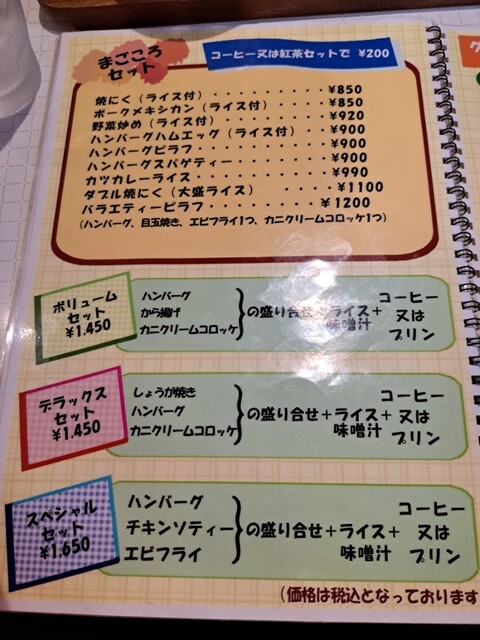 まごころ
セット
コーヒー又は紅茶セットで ¥200
焼にく（ライス付）・・・・・・・・・¥850
ポークメキシカン（ライス付）・・・・¥850
野菜炒め（ライス付）・・・・・・・・¥920
ハンバーグハムエッグ（ライス付）・・¥900
ハンバーグピラフ・・・・・・・・・・¥900
ハンバーグスパゲティー・・・・・・・¥900
カツカレーライス・・・・・・・・・・¥990
ダブル焼にく（大盛ライス）　・・・・¥1100
バラエティーピラフ・・・・・・・・・¥1200
（ハンバーグ、目玉焼き、エビフライ1つ、カニクリームコロッケ1つ）
ボリューム
セット
¥1.450
ハンバーグ
から揚げ
カニクリームコロッケ
の盛り合せ+ライス+
味噌汁
コーヒー
又は
プリン
デラックス
セット
¥1.450
しょうが焼き
ハンバーグ
カニクリームコロッケ
の盛り合せ+ライス+
味噌汁
コーヒー
又は
プリン
スペシャル
セット
¥1.650
ハンバーグ
チキンソティー
エビフライ
の盛り合せ+ライス+
味噌汁
コーヒー
又は
プリン
（価格は税込となっております